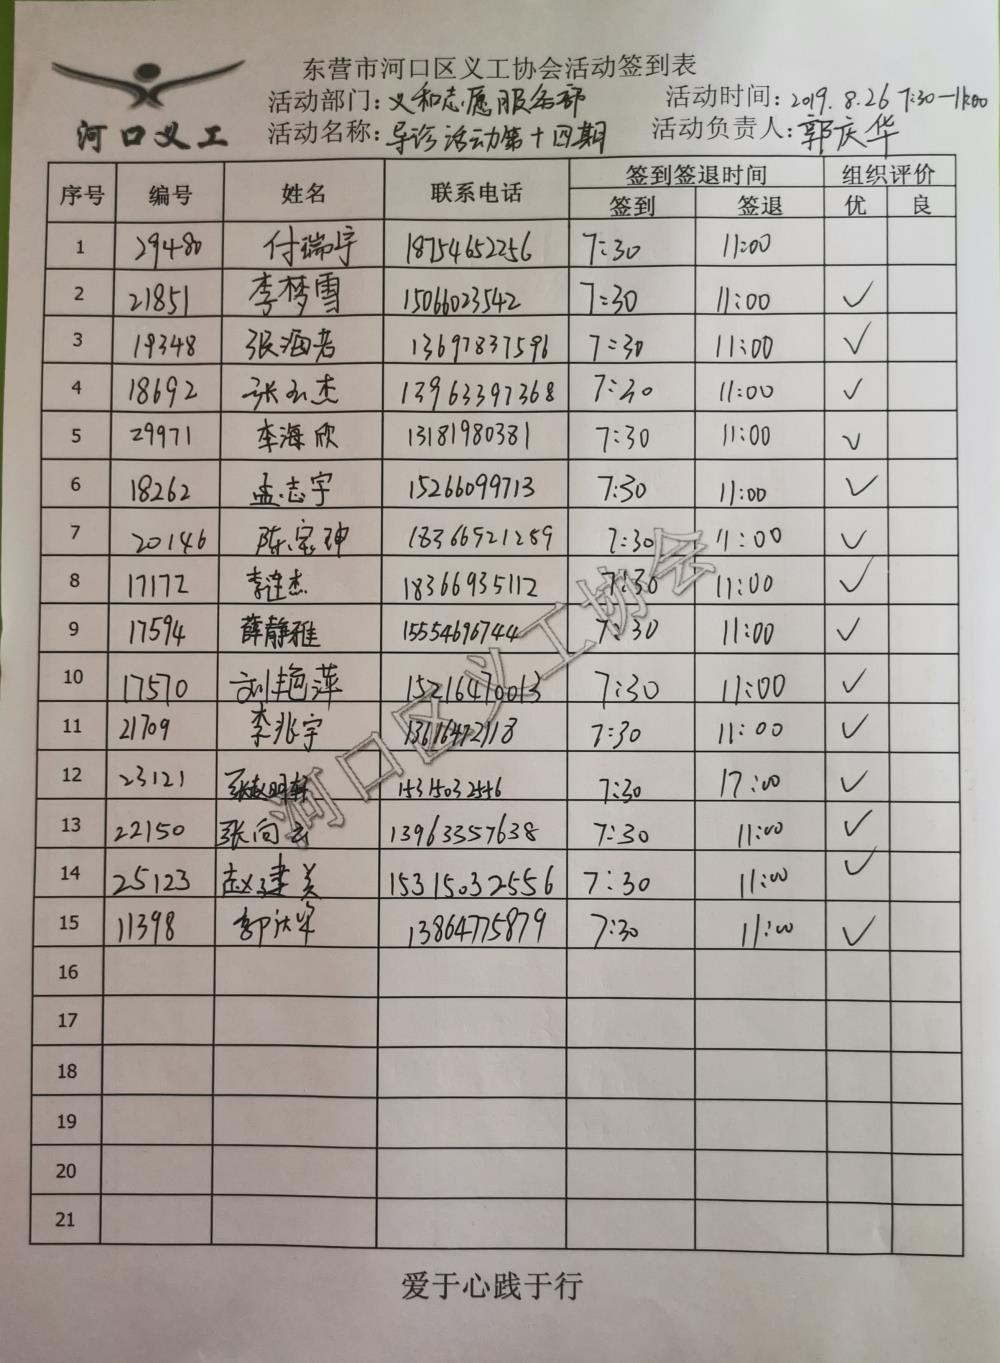 东营市河口区义工协会活动签到表
活动部门：义和志愿服务部 活动时间：2019.8.26 7:30—11:00
河口义工 活动名称：导诊活动第十四期 活动负责人：郭庆华
序号 编号 姓名 联系电话 签到签退时间 组织评价
签到 签退 优 良
1 29480 付瑞宇 18754652256 7:30 11:00
2 21851 李梦雪 15066023542 7:30 11:00 ✓
3 19348 张海若 13697837596 7:30 11:00 ✓
4 18692 张玉杰 13963397368 7:30 11:00 ✓
5 29971 李海欣 13181980381 7:30 11:00 ✓
6 18262 孟志宇 15266099713 7:30 11:00 ✓
7 20146 陈宝珅 18366921289 7:30 11:00 ✓
8 17172 李连杰 18366935112 7:30 11:00 ✓
9 17594 薛静雅 15554696744 7:30 11:00 ✓
10 17570 刘艳萍 15216470013 7:30 11:00 ✓
11 21709 李兆宇 13616472118 7:30 11:00 ✓
12 23121 张赵明轩 15315032546 7:30 17:00 ✓
13 22150 张向云 13963357638 7:30 11:00 ✓
14 25123 赵建美 15315032556 7:30 11:00 ✓
15 11398 郭庆华 13864775879 7:30 11:00 ✓
16
17
18
19
20
21
河口区义工协会
爱于心践于行